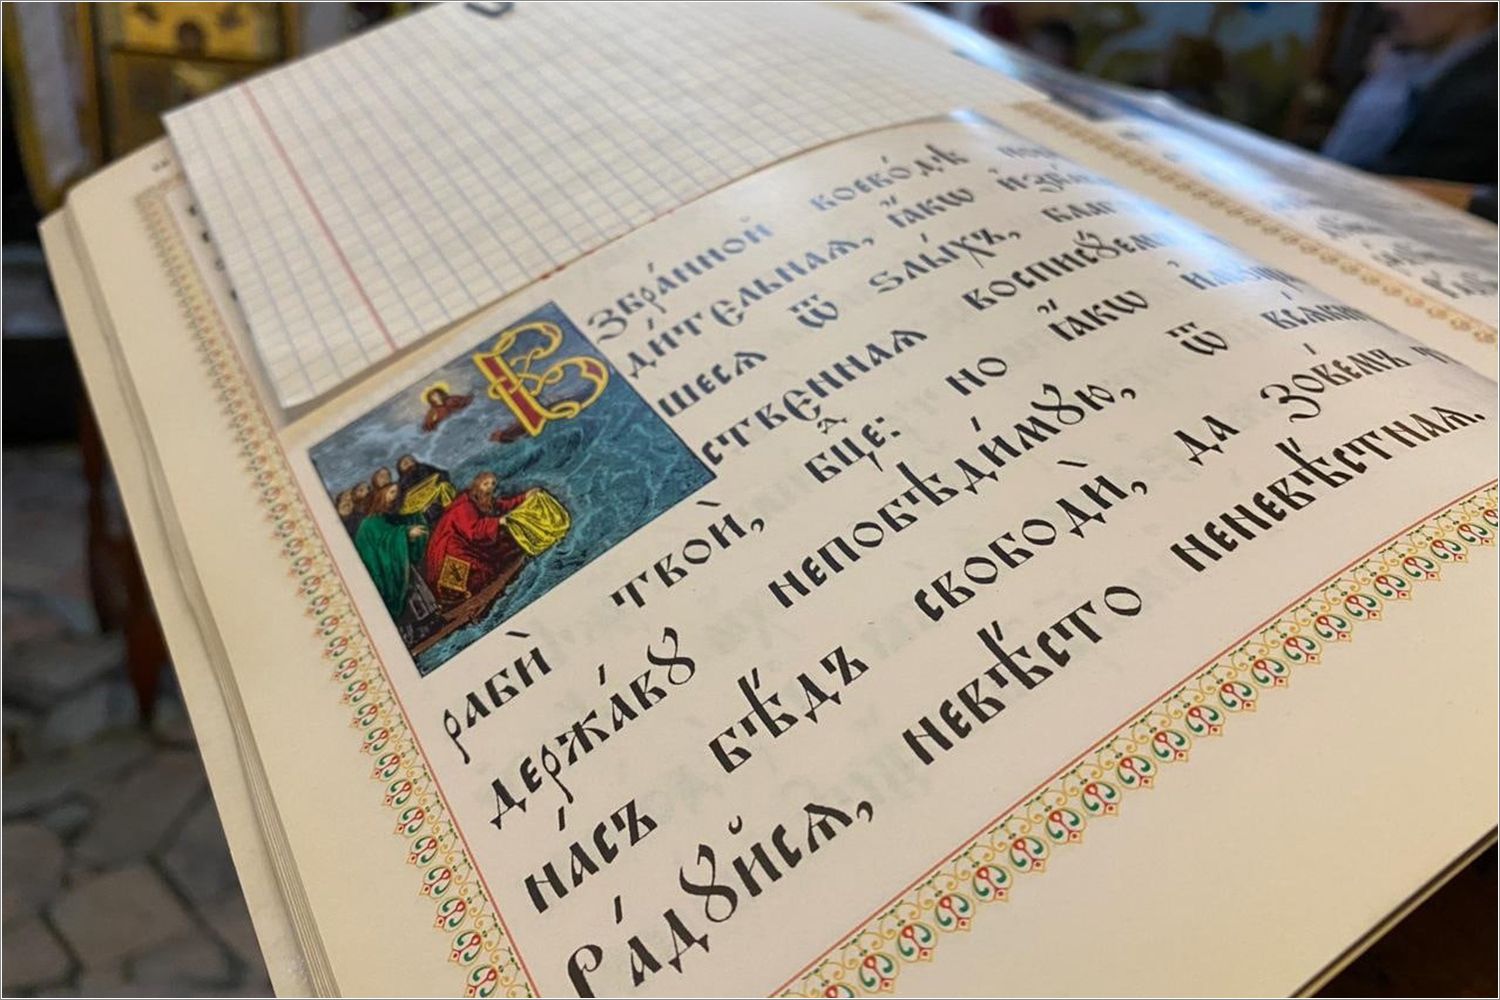 Взбра́нной воево́дѣ
ди́тельная, ꙗ҆́кѡ и҆зба́вль
шеся ѿ ѕлы́хъ, благ
ственная восписꙋ́ем
рабѝ твоѝ, бц҃е: но ꙗ҆́кѡ и҆мꙋ́щ
держа́вꙋ непобѣди́мꙋю, ѿ
на́съ бѣ́дъ свободѝ, да зове́мъ т
Ра́дꙋйся, невѣ́сто неневѣ́стная.